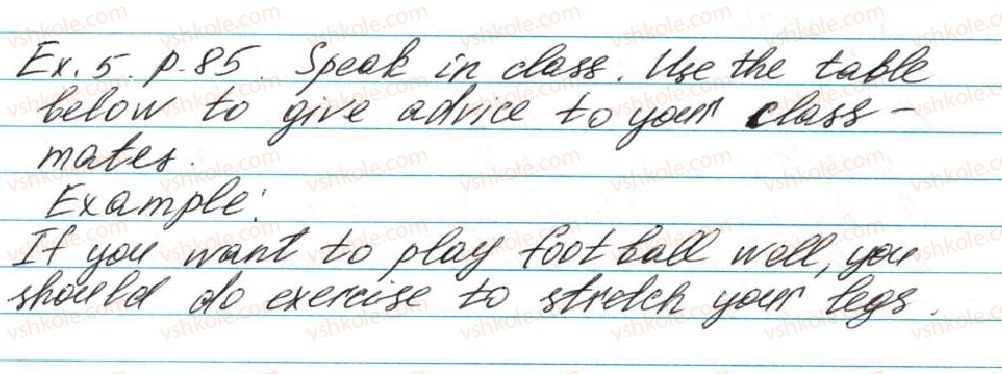 Ex. 5. p. 85. Speak in class. Use the table
below to give advice to your class-
mates.
Example:
If you want to play football well, you
should do exercise to stretch your legs.